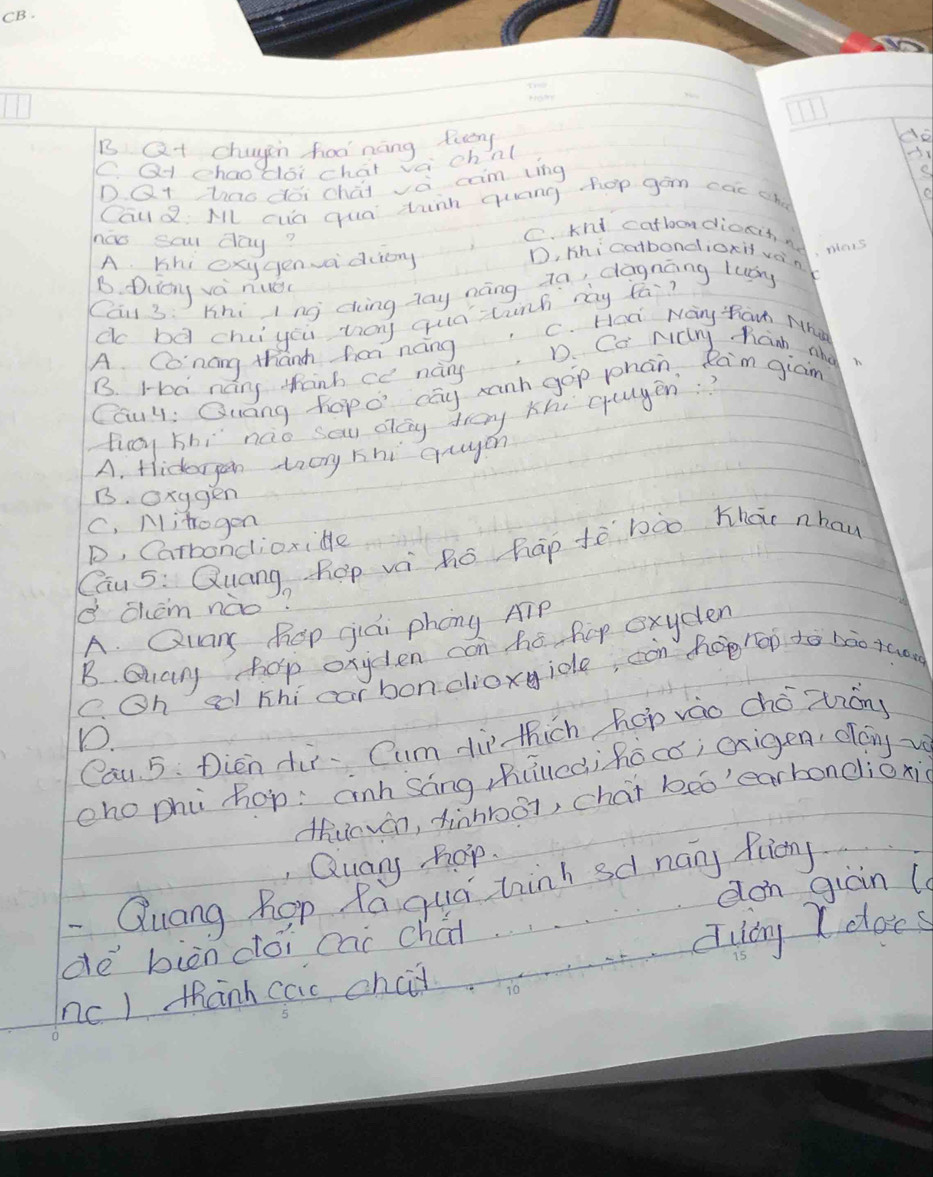 CB.
B Qt chuyển hoá năng lượng
C. Qt chao đổi chất và
D. Qt trao đổi chất và cảm ứng
Câu 2: NL của quá trình quang hợp gồm các
nào sau đây?
A. Khí oxygen và đường
C. khí catbondioxit,
B. Đường và nước
D. khí catbondioxit và n
Câu 3: Khi 1 ng dùng tay nâng tạ, dạng năng lượng
đc bđ chủ yếu trong quá trình này là?
A. Cơ năng thành hoá năng
C. Hoá Năng thành Nh
B. Hoá năng thành cơ năng
D. Cơ Năng thành nh
Câu 4: Quang hợp ở cây xanh góp phần làm giảm
lượng khí nào sau đây trong khí quyển:?
A. Hidorgen trong khí quyển
B. oxygen
C, Nitrogen
D, Carbondioxide
Câu 5: Quang hợp và hô hấp tế bào khác nhau
ở điểm nào?
A. Quang hợp giải phóng ATP
B. Quang hợp oxyden còn hô hấp oxyden
C. Qh sd khí carbondioxyide, còn tế bào
D.
Câu 5: Điền từ - Cụm từ thích hợp vào chỗ trống
cho phù hợp: ánh sáng, hữu cơ, hô cơ, oxigen, động và
thực vật, tinh bột, chất béo, carbondioxid
, Quang hợp.
- Quang hợp là quá trình sd năng lượng ......
để biến đổi các chất .......... đơn giản (
nc) thành các chất .......... đường
0 5 10 15